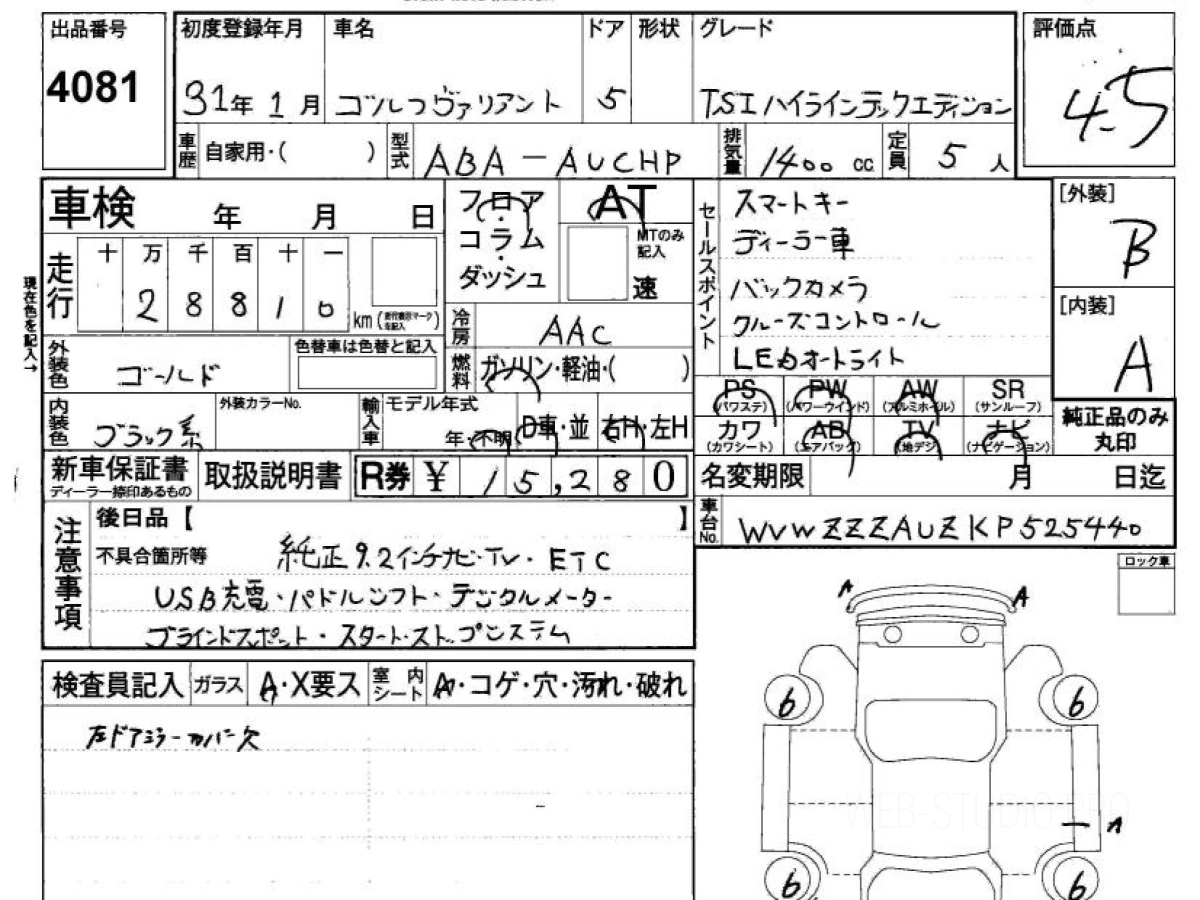 出品番号
4081
初度登録年月
31年 1月
車名
ゴルフヴァリアント
ドア
5
形状
グレード
TSIハイラインテックエディション
評価点
4.5
車歴
自家用・( )
型式
ABA-AUCHP
排気量
1400 cc
定員
5人
車検 年 月 日
フロア
コラム
ダッシュ
AT
MTのみ記入
速
セールスポイント
スマートキー
ディーラー車
バックカメラ
クルーズコントロール
LEDオートライト
[外装]
B
[内装]
A
現在色を記入→
走行
十 万 千 百 十 一
2 8 8 1 6
km
冷房
AAC
外装色
ゴールド
色替車は色替と記入
燃料
ガソリン・軽油・( )
PS (パワステ)
PW (パワーウインド)
AW (アルミホイル)
SR (サンルーフ)
カワ (カワシート)
AB (エアバック)
TV (地デジ)
ナビ (ナビゲーション)
純正品のみ丸印
内装色
ブラック系
外装カラーNo.
輸入車
モデル年式
年・不明
D車・並
右H・左H
新車保証書
ディーラー捺印あるもの
取扱説明書
R券 ¥ 15,280
名変期限 月 日迄
車台No.
WVWZZZAUZKP525440
注意事項
後日品【 】
不具合箇所等
純正9.2インチナビ・TV・ETC
USB充電・パドルシフト・デジタルメーター
ブラインドスポット・スタート・ストップシステム
ロック車
検査員記入
ガラス
A・X要ス
室内シート
A・コゲ・穴・汚れ・破れ
左ドアミラーカバー欠
A A
6 6
A
6 6
WEB-STUDIO.PRO